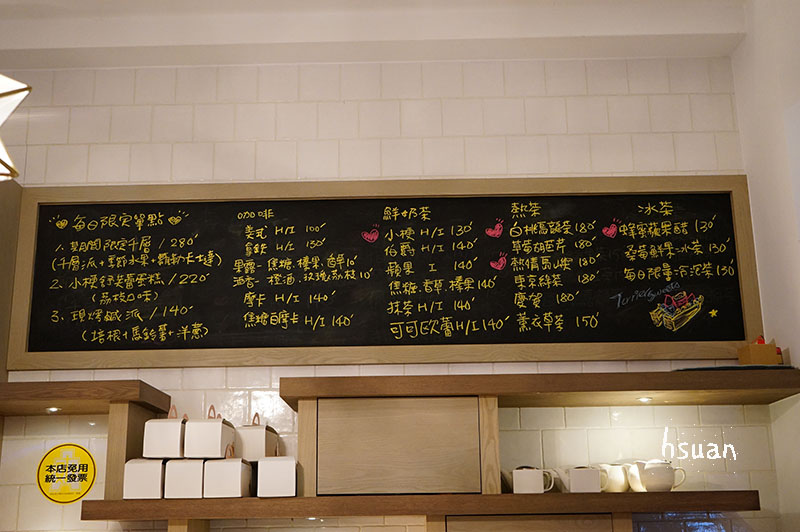 每日限定單點
1. 期間限定千層 / 280'
(千層派+季節水果+
2. 小梗舒芙蕾蛋糕 / 220'
(荔枝口味)
3. 現烤鹹派 / 140'
(培根+馬鈴薯+洋蔥)
咖啡
美式 H/I 100'
拿鐵 H/I 130'
果露- 焦糖.榛果.香草10'
酒香- 橙酒.玫瑰荔枝10'
摩卡 H/I 140'
焦糖摩卡 H/I 140'
鮮奶茶
小梗 H/I 130'
伯爵 H/I 140'
蘋果 I 140'
焦糖.香草.榛果 140'
抹茶 H/I 140'
可可歐蕾 H/I 140'
熱茶
白桃烏龍茶 180'
草莓 180'
熱情 180'
東京綠茶 180'
180'
薰衣草茶 150'
冰茶
蜂蜜蘋果醋 130'
莓鮮果冰茶 130'
每日限量冷泡茶 130'
本店免用
統一發票
hsuan